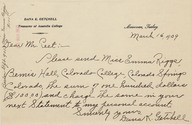 DANA K. GETCHELL
Treasurer of Anatolia College
Marsovan, Turkey
March 14, 1909
Dear Mr. Peet:-
Please send Miss Emma Riggs
Bemis Hall, Colorado College, Colorado Springs
Colorado, the sum of one hundred dollars
$100.00 and charge the same in your
next statement to my personal account.
Sincerely yours,
Dana K. Getchell